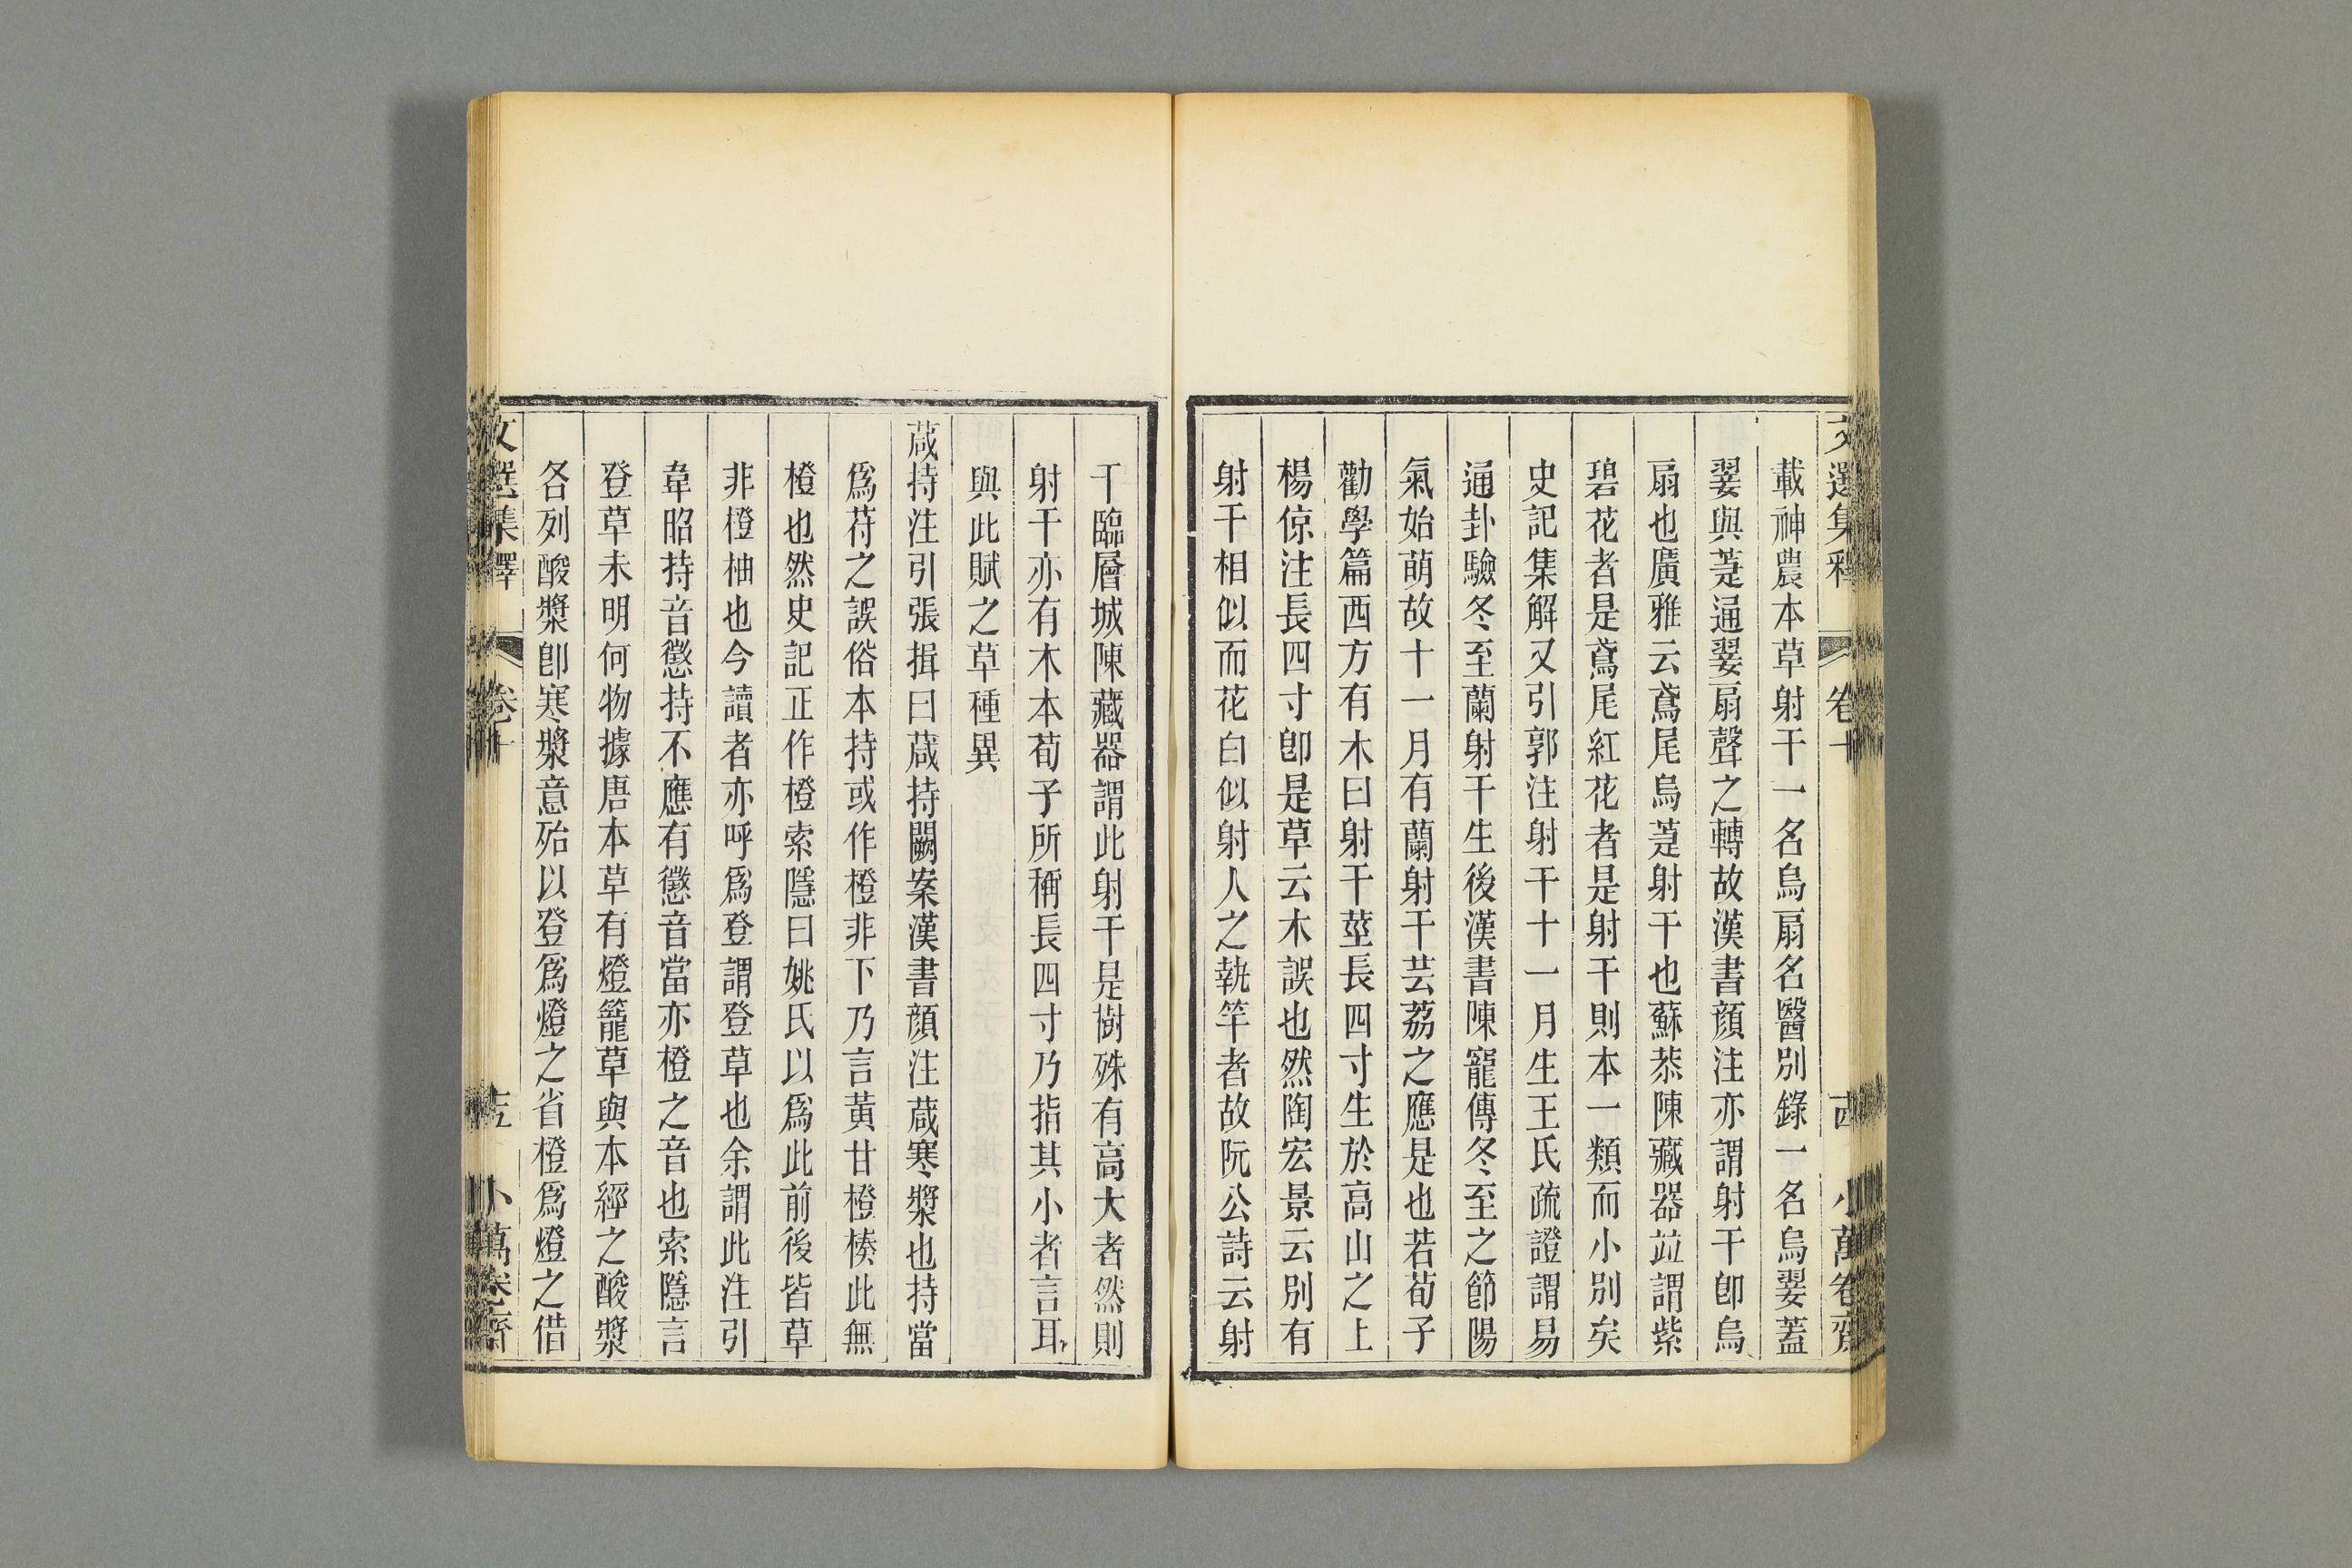 文選集釋 卷十 古 小萬卷齋
載神農本草射干一名烏扇名醫別錄一名烏翣蓋
翣與萐通翣扇聲之轉故漢書顔注亦謂射干卽烏
扇也廣雅云鳶尾烏萐射干也蘇恭陳藏器竝謂紫
碧花者是鳶尾紅花者是射干則本一類而小別矣
史記集解又引郭注射干十一月生王氏疏證謂易
通卦驗冬至蘭射干生後漢書陳寵傳冬至之節陽
氣始萌故十一月有蘭射干芸荔之應是也若荀子
勸學篇西方有木曰射干莖長四寸生於高山之上
楊倞注長四寸卽是草云木誤也然陶宏景云別有
射干相似而花白似射人之執竿者故阮公詩云射
干臨層城陳藏器謂此射干是樹殊有高大者然則
射干亦有木本荀子所稱長四寸乃指其小者言耳
與此賦之草種異
葴持注引張揖曰葴持闕案漢書顔注葴寒漿也持當
爲苻之誤俗本持或作橙非下乃言黃甘橙楱此無
橙也然史記正作橙索隱曰姚氏以爲此前後皆草
非橙柚也今讀者亦呼爲登謂登草也余謂此注引
韋昭持音懲持不應有懲音當亦橙之音也索隱言
登草未明何物據唐本草有燈籠草與本經之酸漿
各列酸漿卽寒漿意殆以登爲燈之省橙爲燈之借
文選集釋 卷十 圭 小萬卷齋